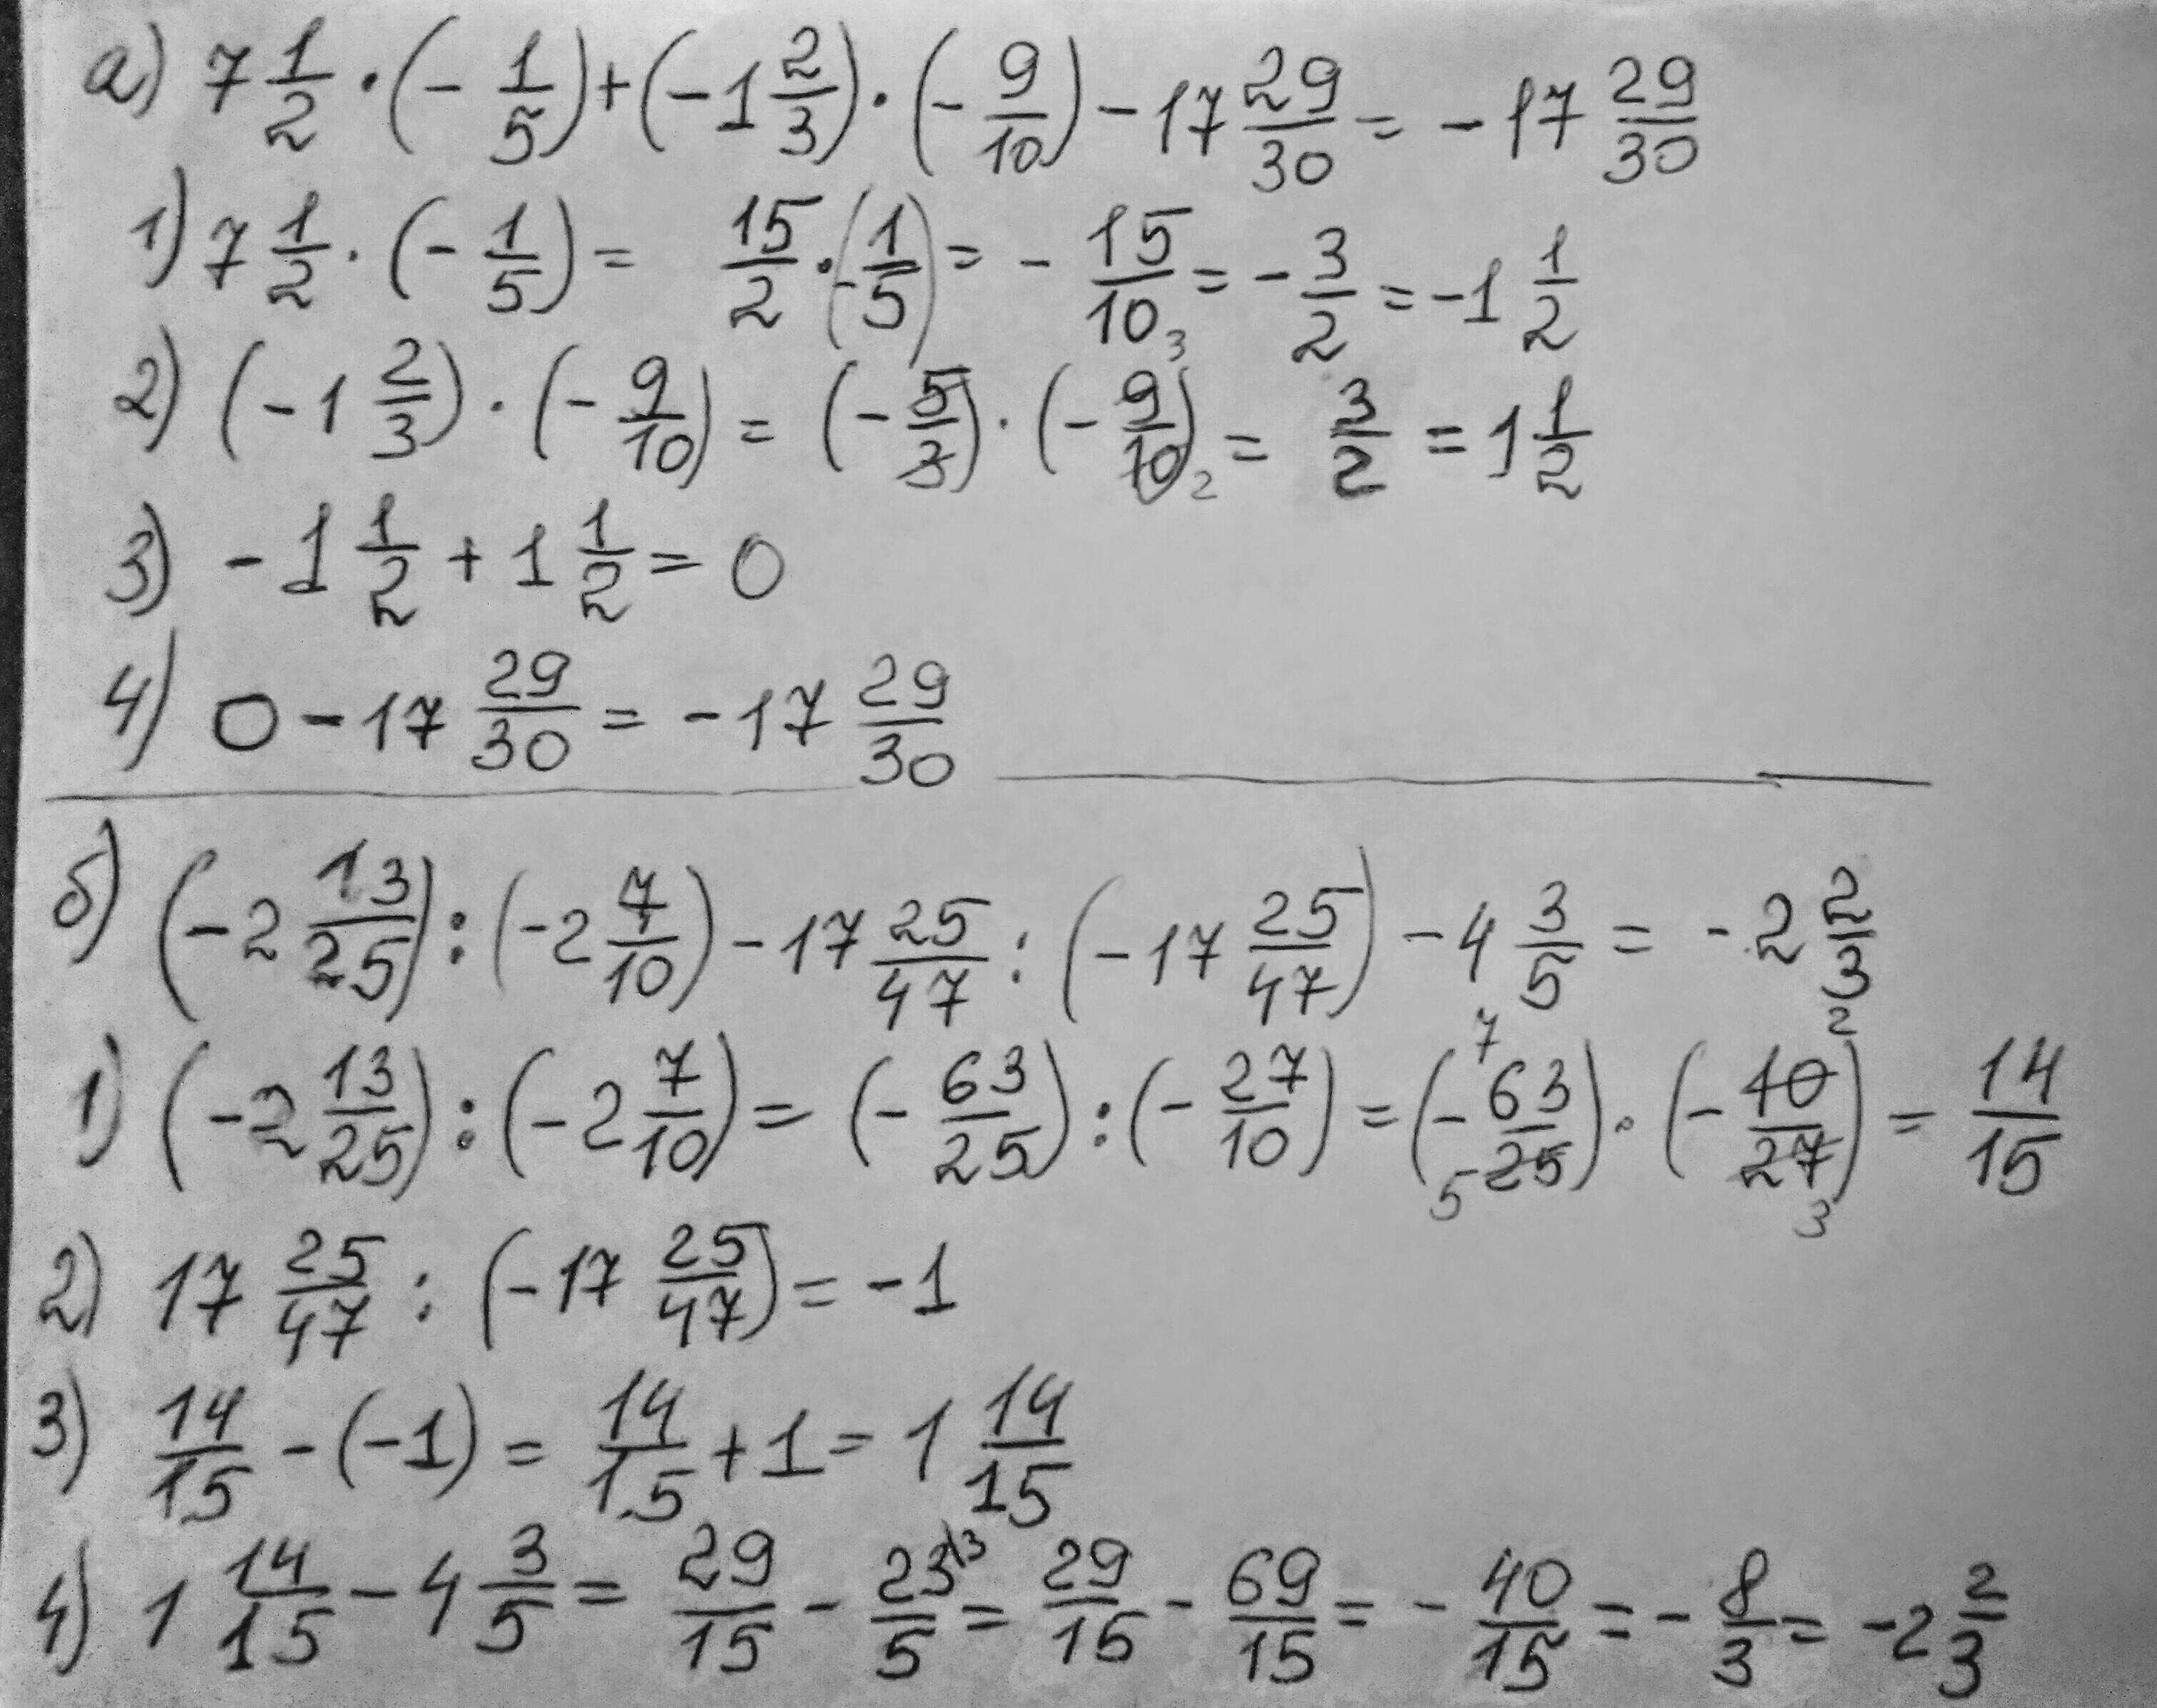 а) 7 1/2 · (- 1/5) + (-1 2/3) · (- 9/10) - 17 29/30 = -17 29/30
1) 7 1/2 · (- 1/5) = 15/2 · (- 1/5) = - 15/10 = - 3/2 = -1 1/2
2) (-1 2/3) · (- 9/10) = (- 5/3) · (- 9/10) 3 2 = 3/2 = 1 1/2
3) -1 1/2 + 1 1/2 = 0
4) 0 - 17 29/30 = -17 29/30
б) (-2 13/25) : (-2 7/10) - 17 25/47 : (-17 25/47) - 4 3/5 = -2 2/3
1) (-2 13/25) : (-2 7/10) = (- 63/25) : (- 27/10) = (- 7 63/25 5) · (- 2 10/27 3) = 14/15
2) 17 25/47 : (-17 25/47) = -1
3) 14/15 - (-1) = 14/15 + 1 = 1 14/15
4) 1 14/15 - 4 3/5 = 29/15 - 23\3/5 = 29/15 - 69/15 = - 40/15 = - 8/3 = -2 2/3